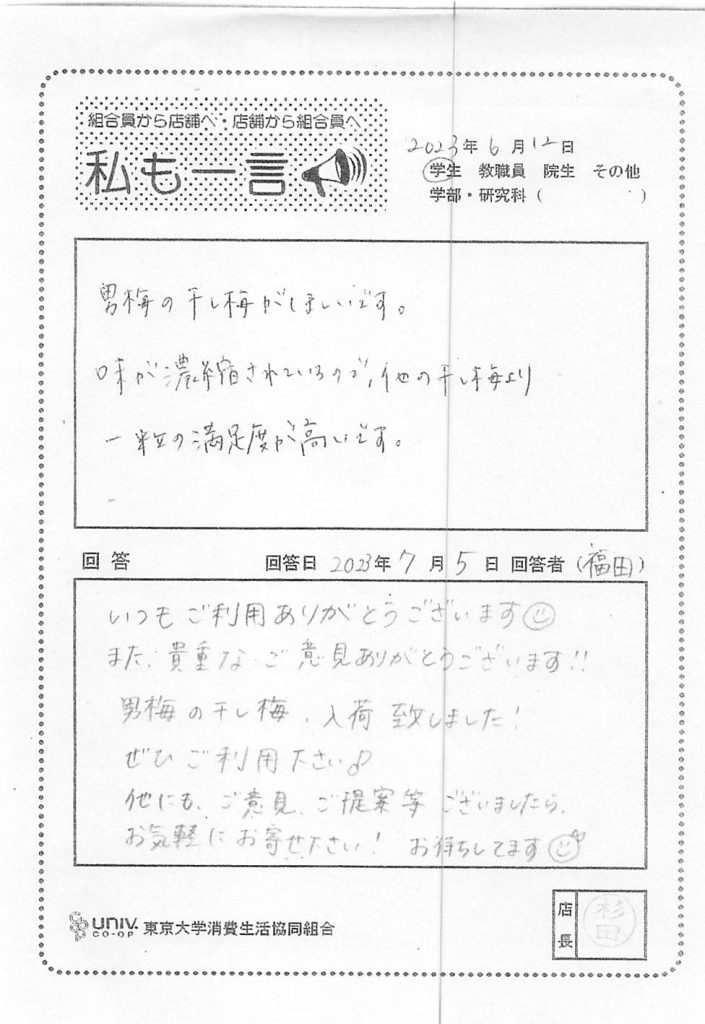 組合員から店舗へ・店舗から組合員へ
私も一言
2023年6月12日
学生 教職員 院生 その他
学部・研究科（　　　）
男梅の干し梅がほしいです。
味が濃縮されているので、他の干し梅より
一粒の満足度が高いです。
回答 回答日 2023年7月5日 回答者（福田）
いつもご利用ありがとうございます
また、貴重なご意見ありがとうございます!!
男梅の干し梅、入荷致しました！
ぜひご利用下さい♪
他にも、ご意見、ご提案等ございましたら、
お気軽にお寄せ下さい！ お待ちしてます
UNIV. CO-OP 東京大学消費生活協同組合
店長 杉田